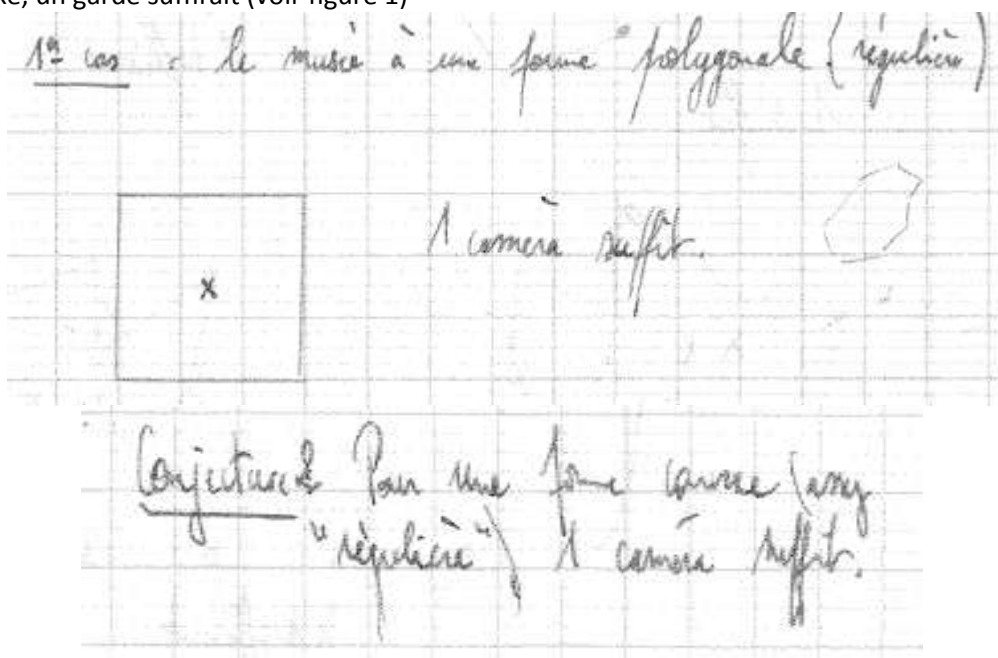 un garde suffirait (voir figure 1)
1er cas : le musée à une forme "polygonale (régulière)
1 caméra suffit.
Conjecture Pour une forme convexe (assez
"régulière") 1 caméra suffit.